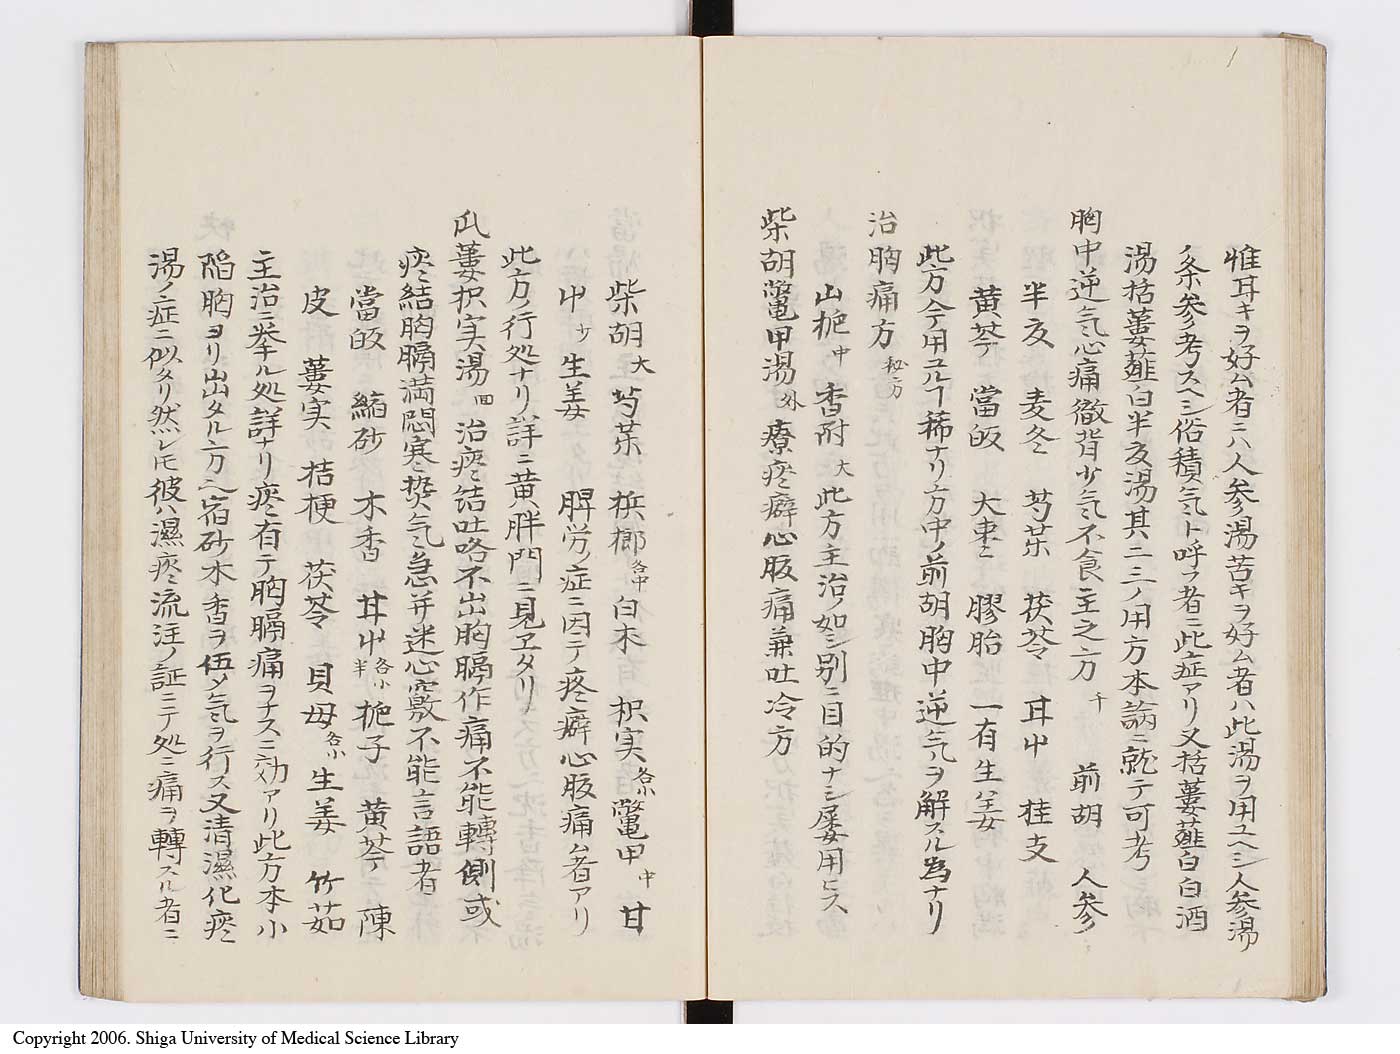 惟耳キヲ好ム者ニハ人参湯苦キヲ好ム者ハ此湯ヲ用ユヘシ人参湯
条参考スヘシ俗積気ト呼フ者ニ此症アリ又栝蔞薤白白酒
湯栝蔞薤白半夏湯其ニ三ノ用方本論ニ就テ可考
胸中逆気心痛徹背少気不食主之方 千 前胡 人参
半夏 麦冬 芍薬 茯苓 甘艸 桂支
黄芩 當皈 大棗 膠飴 一有生姜
此方今用ユルヿ稀ナリ方中ノ前胡胸中逆気ヲ解スル為ナリ
治胸痛方 秘方
山梔 中 香附 大 此方主治ノ如シ別ニ目的ナシ屡用ヒス
柴胡鼈甲湯 外 療痃癖心腹痛兼吐冷方
柴胡 大 芍薬 梹榔 各中 白朮 枳実 各小 鼈甲 中 甘
艸 少 生姜 脾労ノ症ニ因テ痃癖心腹痛ム者アリ
此方ノ行処ナリ詳ニ黄胖門ニ見ヱタリ
瓜蔞枳実湯 回 治痰结吐咯不出胸膈作痛不能轉側或
痰結胸膈満悶寒熱気急并迷心竅不能言語者
當皈 縮砂 木香 甘艸 各小半 梔子 黄芩 陳
皮 蔞実 桔梗 茯苓 貝母 各小 生姜 竹茹
主治ニ挙ル処詳ナリ痰有テ胸膈痛ヲナスニ効アリ此方本小
陥胸ヨリ出タル方ヘ宿砂木香ヲ伍シ気ヲ行ス又清濕化痰
湯ノ症ニ似タリ然レ𪜈彼ハ濕痰流注ノ証ニテ処ニ痛ヲ轉スル者ニ
Copyright 2006. Shiga University of Medical Science Library